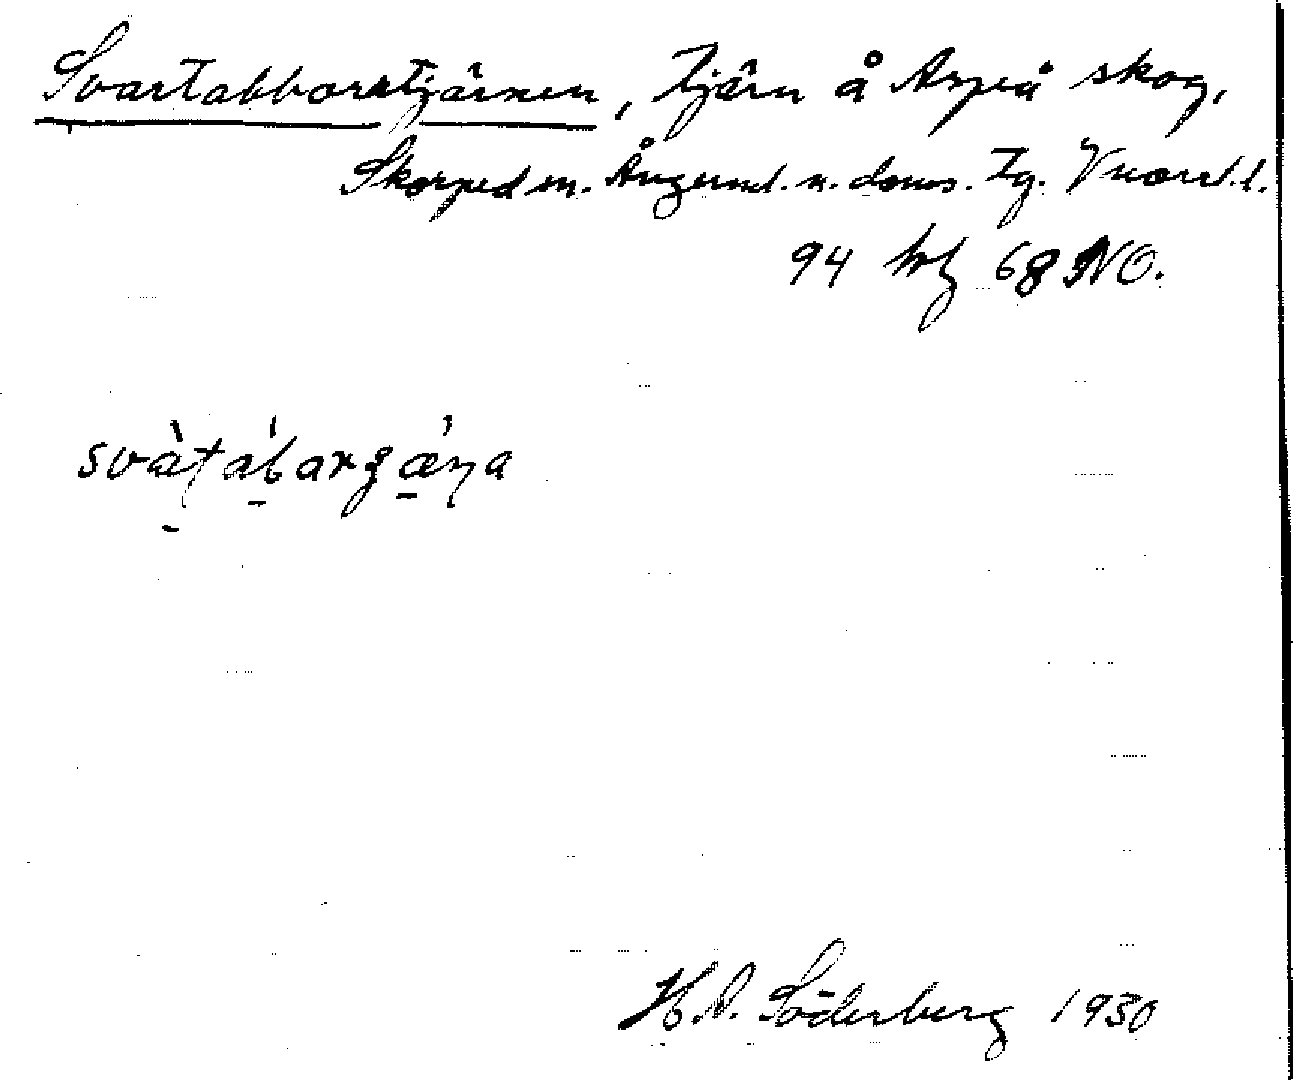 Svartabborrtjärnen, tjärn å Aspeå skog,
Skorped sn. Ångerml. n. doms. Tg. Vnorrl. l.
94 kbl 68 NO.
svàtábarʒǽṇa
H.A. Söderberg 1930